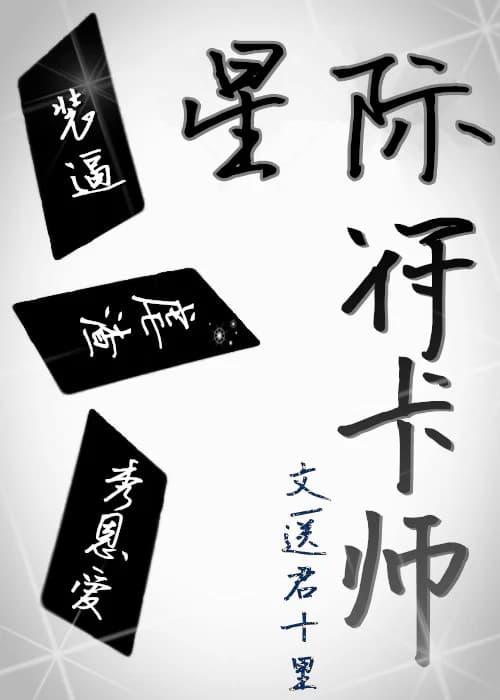 星际符卡师
装逼
虐渣
秀恩爱
文 送君十里